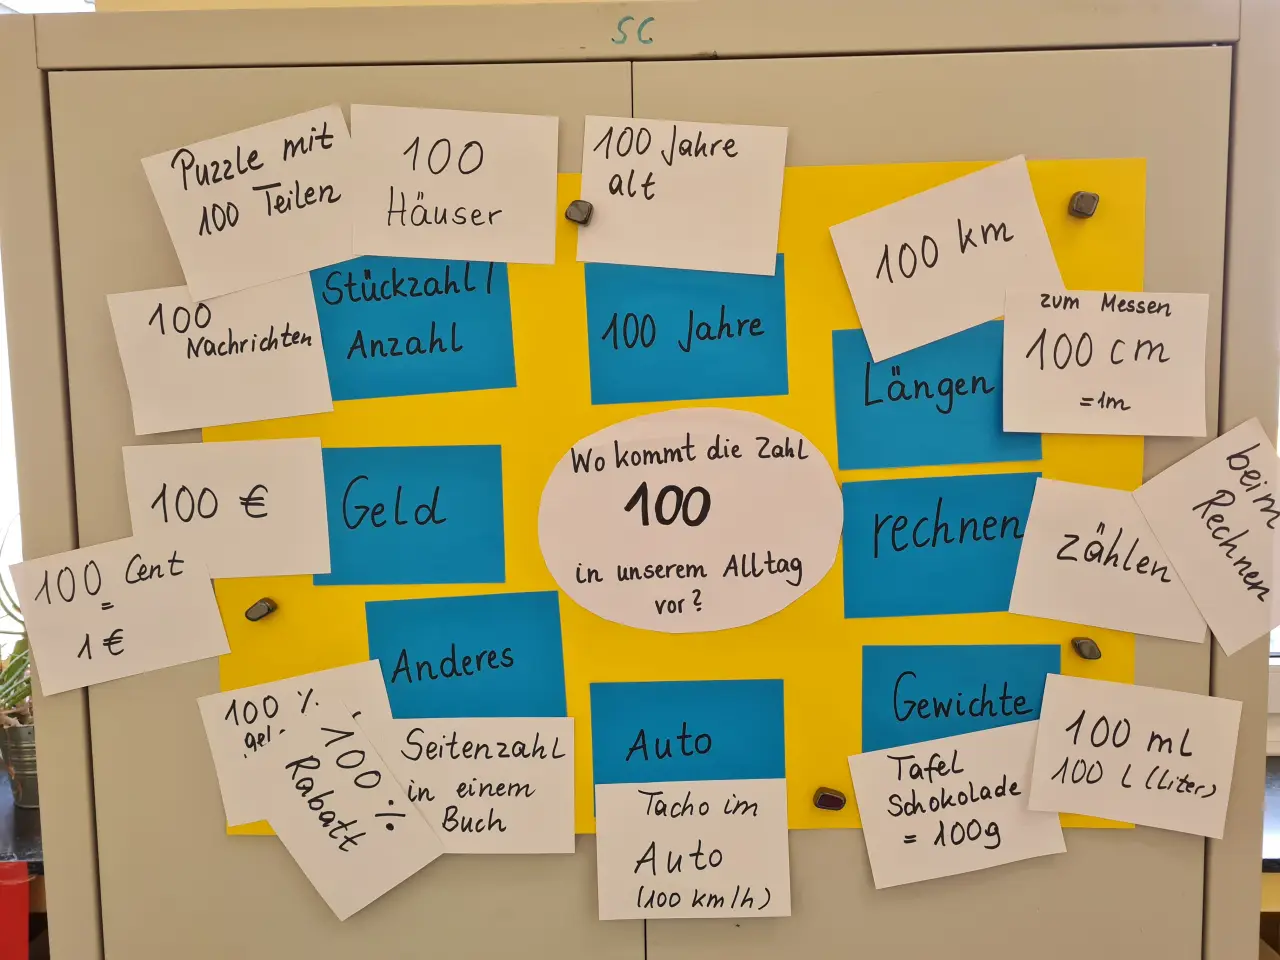 SC
Puzzle mit
100 Teilen
100
Häuser
100
Nachrichten
Stückzahl /
Anzahl
100 Jahre
alt
100 Jahre
100 km
zum Messen
100 cm
= 1m
Längen
Wo kommt die Zahl
100
in unserem Alltag
vor?
100 €
Geld
100 Cent
=
1 €
rechnen
zählen
beim
Rechnen
Anderes
100 %
gel
100 %
Rabatt
Seitenzahl
in einem
Buch
Auto
Tacho im
Auto
(100 km/h)
Gewichte
Tafel
Schokolade
= 100g
100 ml
100 l (Liter)